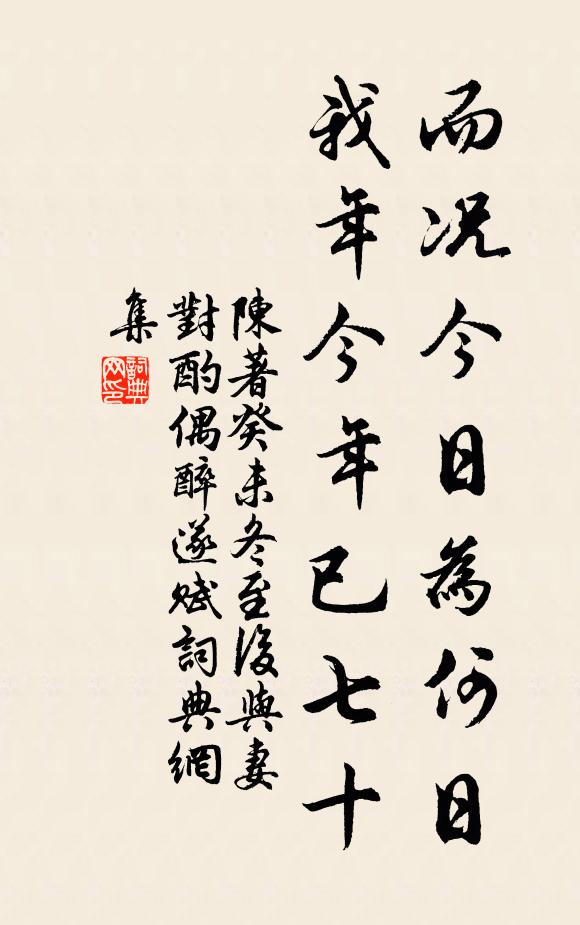 而况今日為何日
我年今年已七十
陳著癸未冬至後與妻
對酌偶醉遂赋詞典網
集
詞典網印